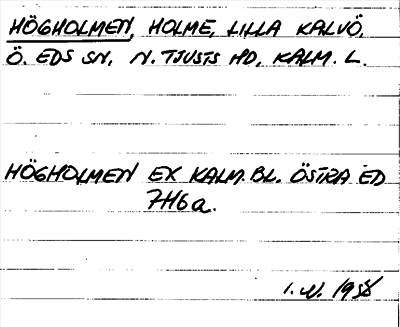 HÖGHOLMEN, HOLME, LILLA KALVÖ,
Ö. EDS SN, N. TJUSTS HD, KALM. L.
HÖGHOLMEN EX KALM. BL. ÖSTRA ED
7H6a.
I. N. 1958